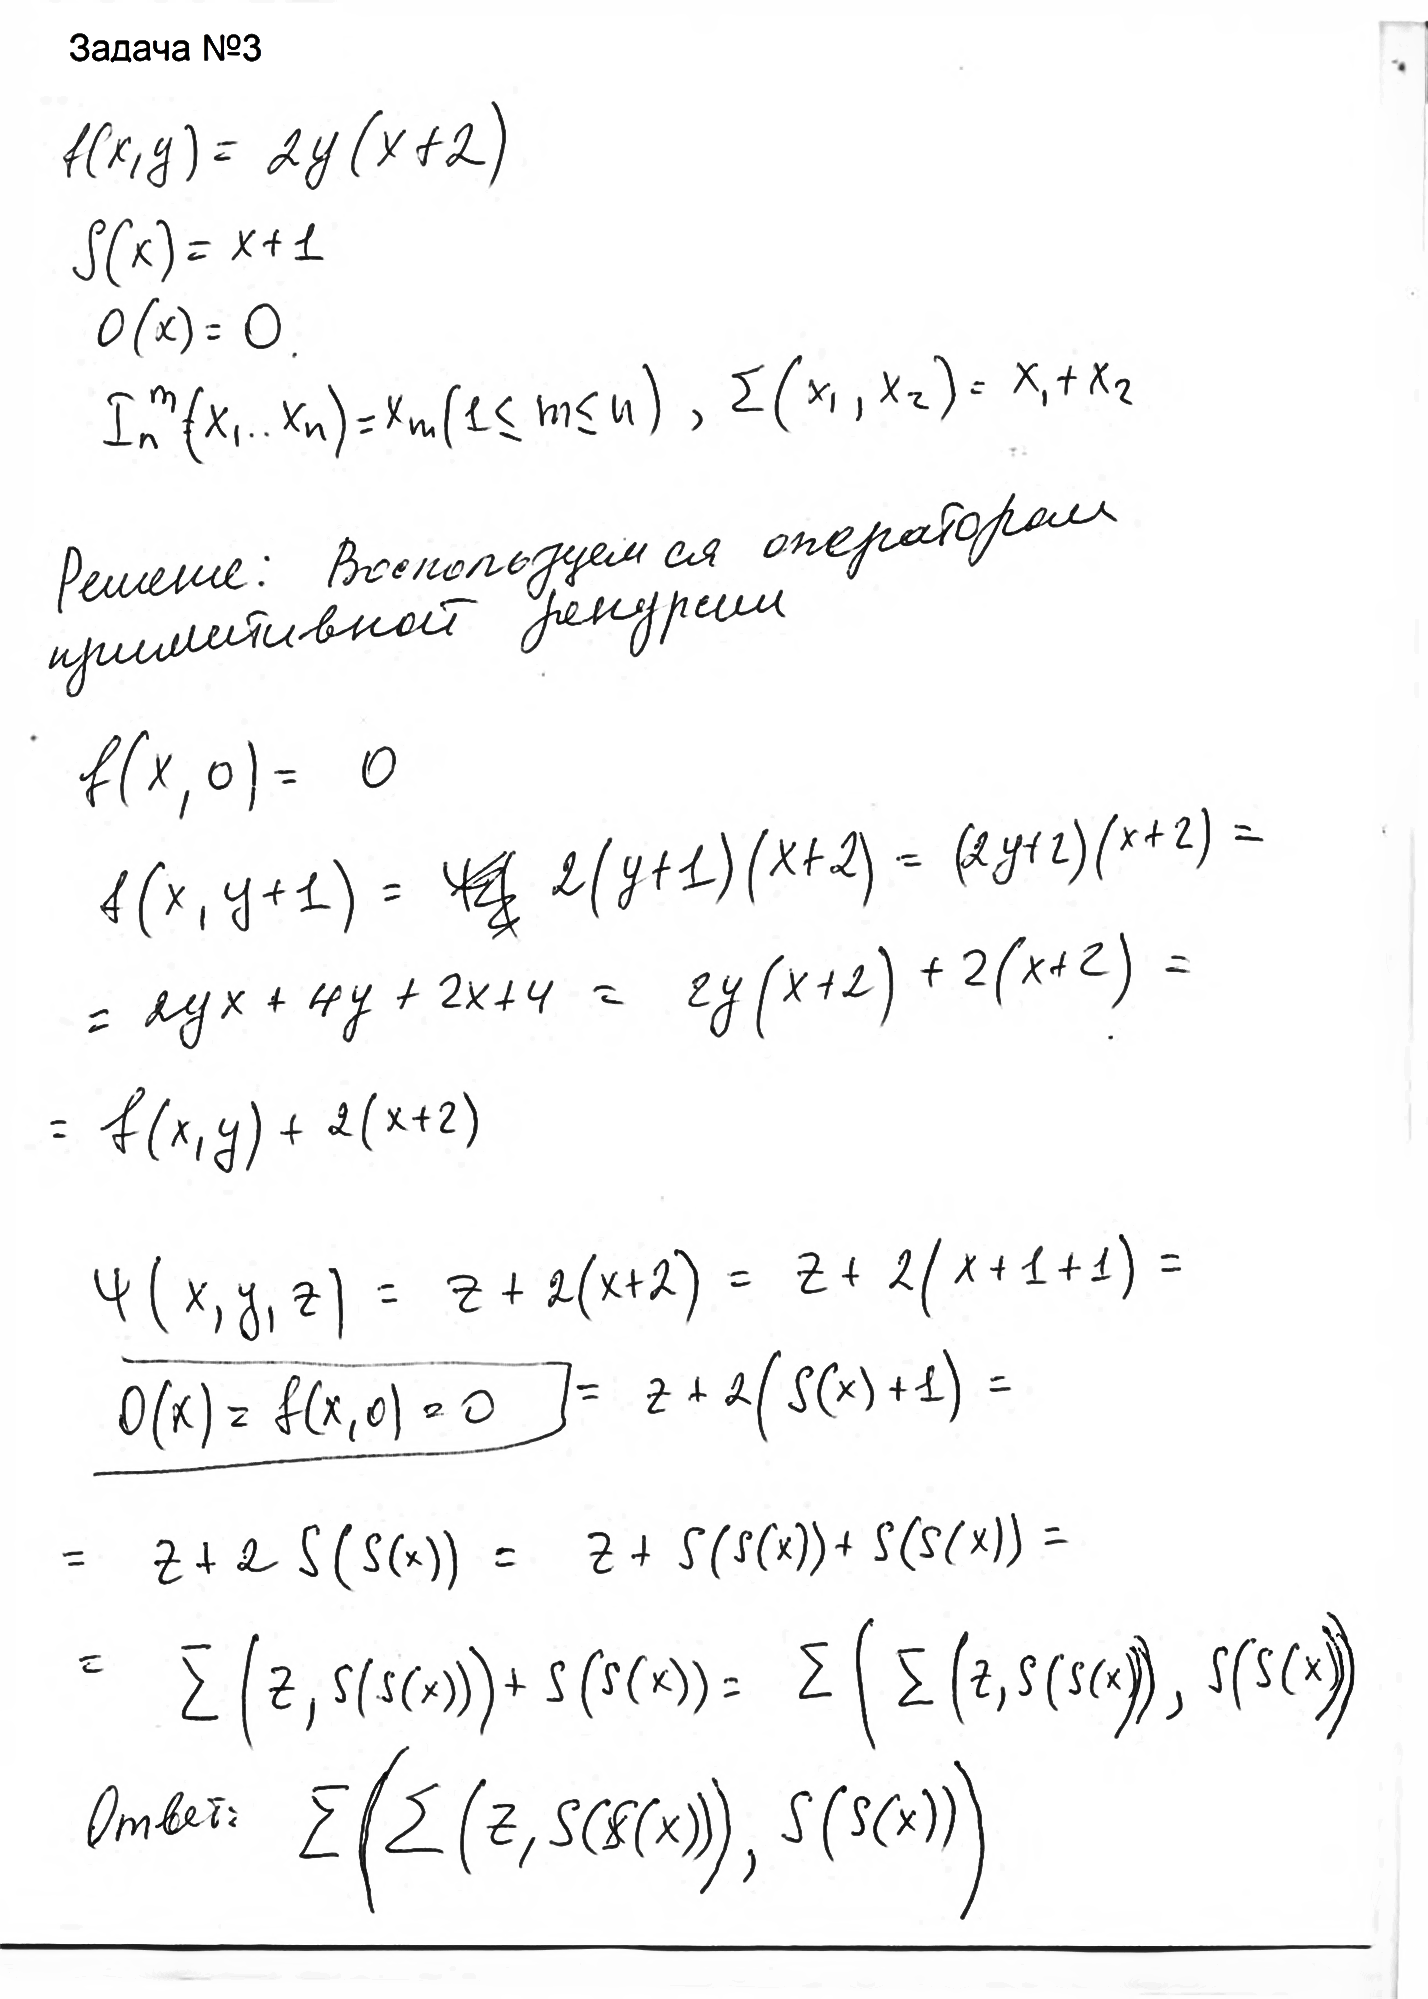 Задача №3
f(x,y) = 2y(x+2)
S(x) = x+1
O(x) = 0.
I_n^m(x₁..xₙ) = xₘ(1≤m≤n), Σ(x₁, x₂) = x₁+x₂
Решение: Воспользуемся оператором
примитивной рекурсии
f(x,0) = 0
f(x, y+1) = 2(y+1)(x+2) = (2y+2)(x+2) =
= 2yx + 4y + 2x+4 = 2y(x+2) + 2(x+2) =
= f(x,y) + 2(x+2)
Ψ(x,y,z) = z + 2(x+2) = z + 2(x+1+1) =
O(x) = f(x,0) = 0 = z + 2(S(x)+1) =
= z + 2 S(S(x)) = z + S(S(x)) + S(S(x)) =
= Σ(z, S(S(x))) + S(S(x)) = Σ(Σ(z, S(S(x))), S(S(x)))
Ответ: Σ(Σ(z, S(S(x))), S(S(x)))